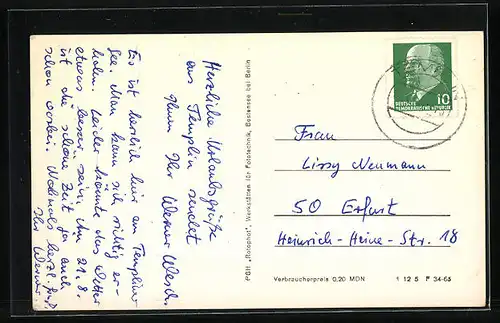 Herzliche Urlaubsgrüße
aus Templin sendet
Ihr Werner
Es ist herrlich hier am Templiner
See. Man kann sich richtig er-
holen. Leider könnte das Wetter
etwas besser sein. Am 21.8.
ist die schöne Zeit ja auch
schon vorbei. Nochmals herzl. Grüße
Ihr Werner
PGH "Rotophot", Werkstätten für Fototechnik, Bestensee bei Berlin
10
DEUTSCHE
DEMOKRATISCHE REPUBLIK
Frau
Lissy Neumann
50 Erfurt
Heinrich-Heine-Str. 18
Verbraucherpreis 0,20 MDN
1 12 5 P 34-65